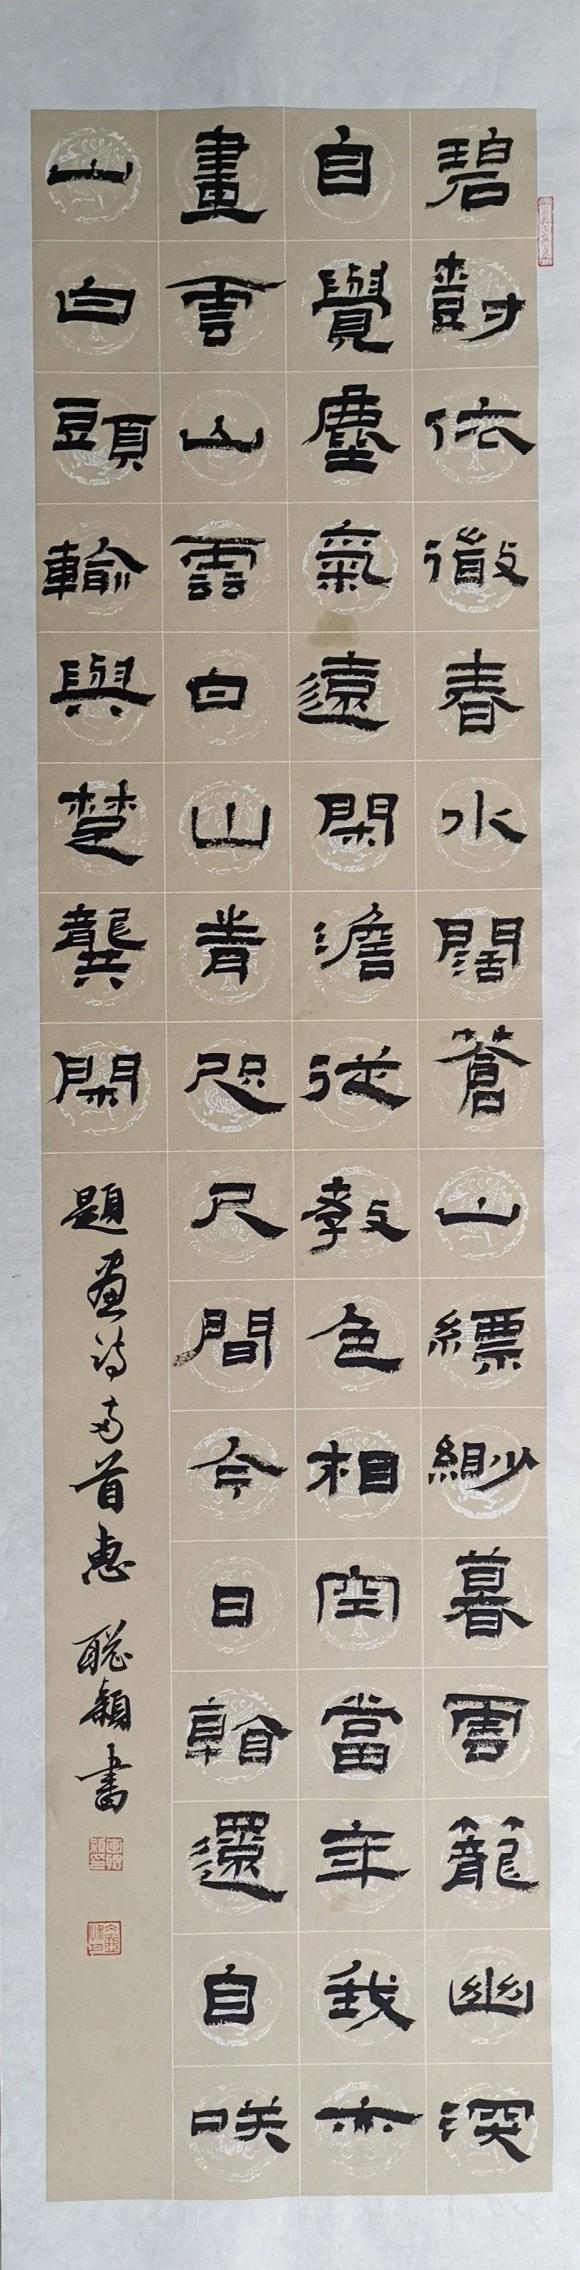 碧對依微春水闊蒼山縹緲暮雲籠幽深
自覺塵氣遠閑澹從教色相空當年我亦
畫雲山雲白山青咫尺間今日翰還自咲
山白頭輸與楚龔閑
題畫詩兩首惠 聪颖書